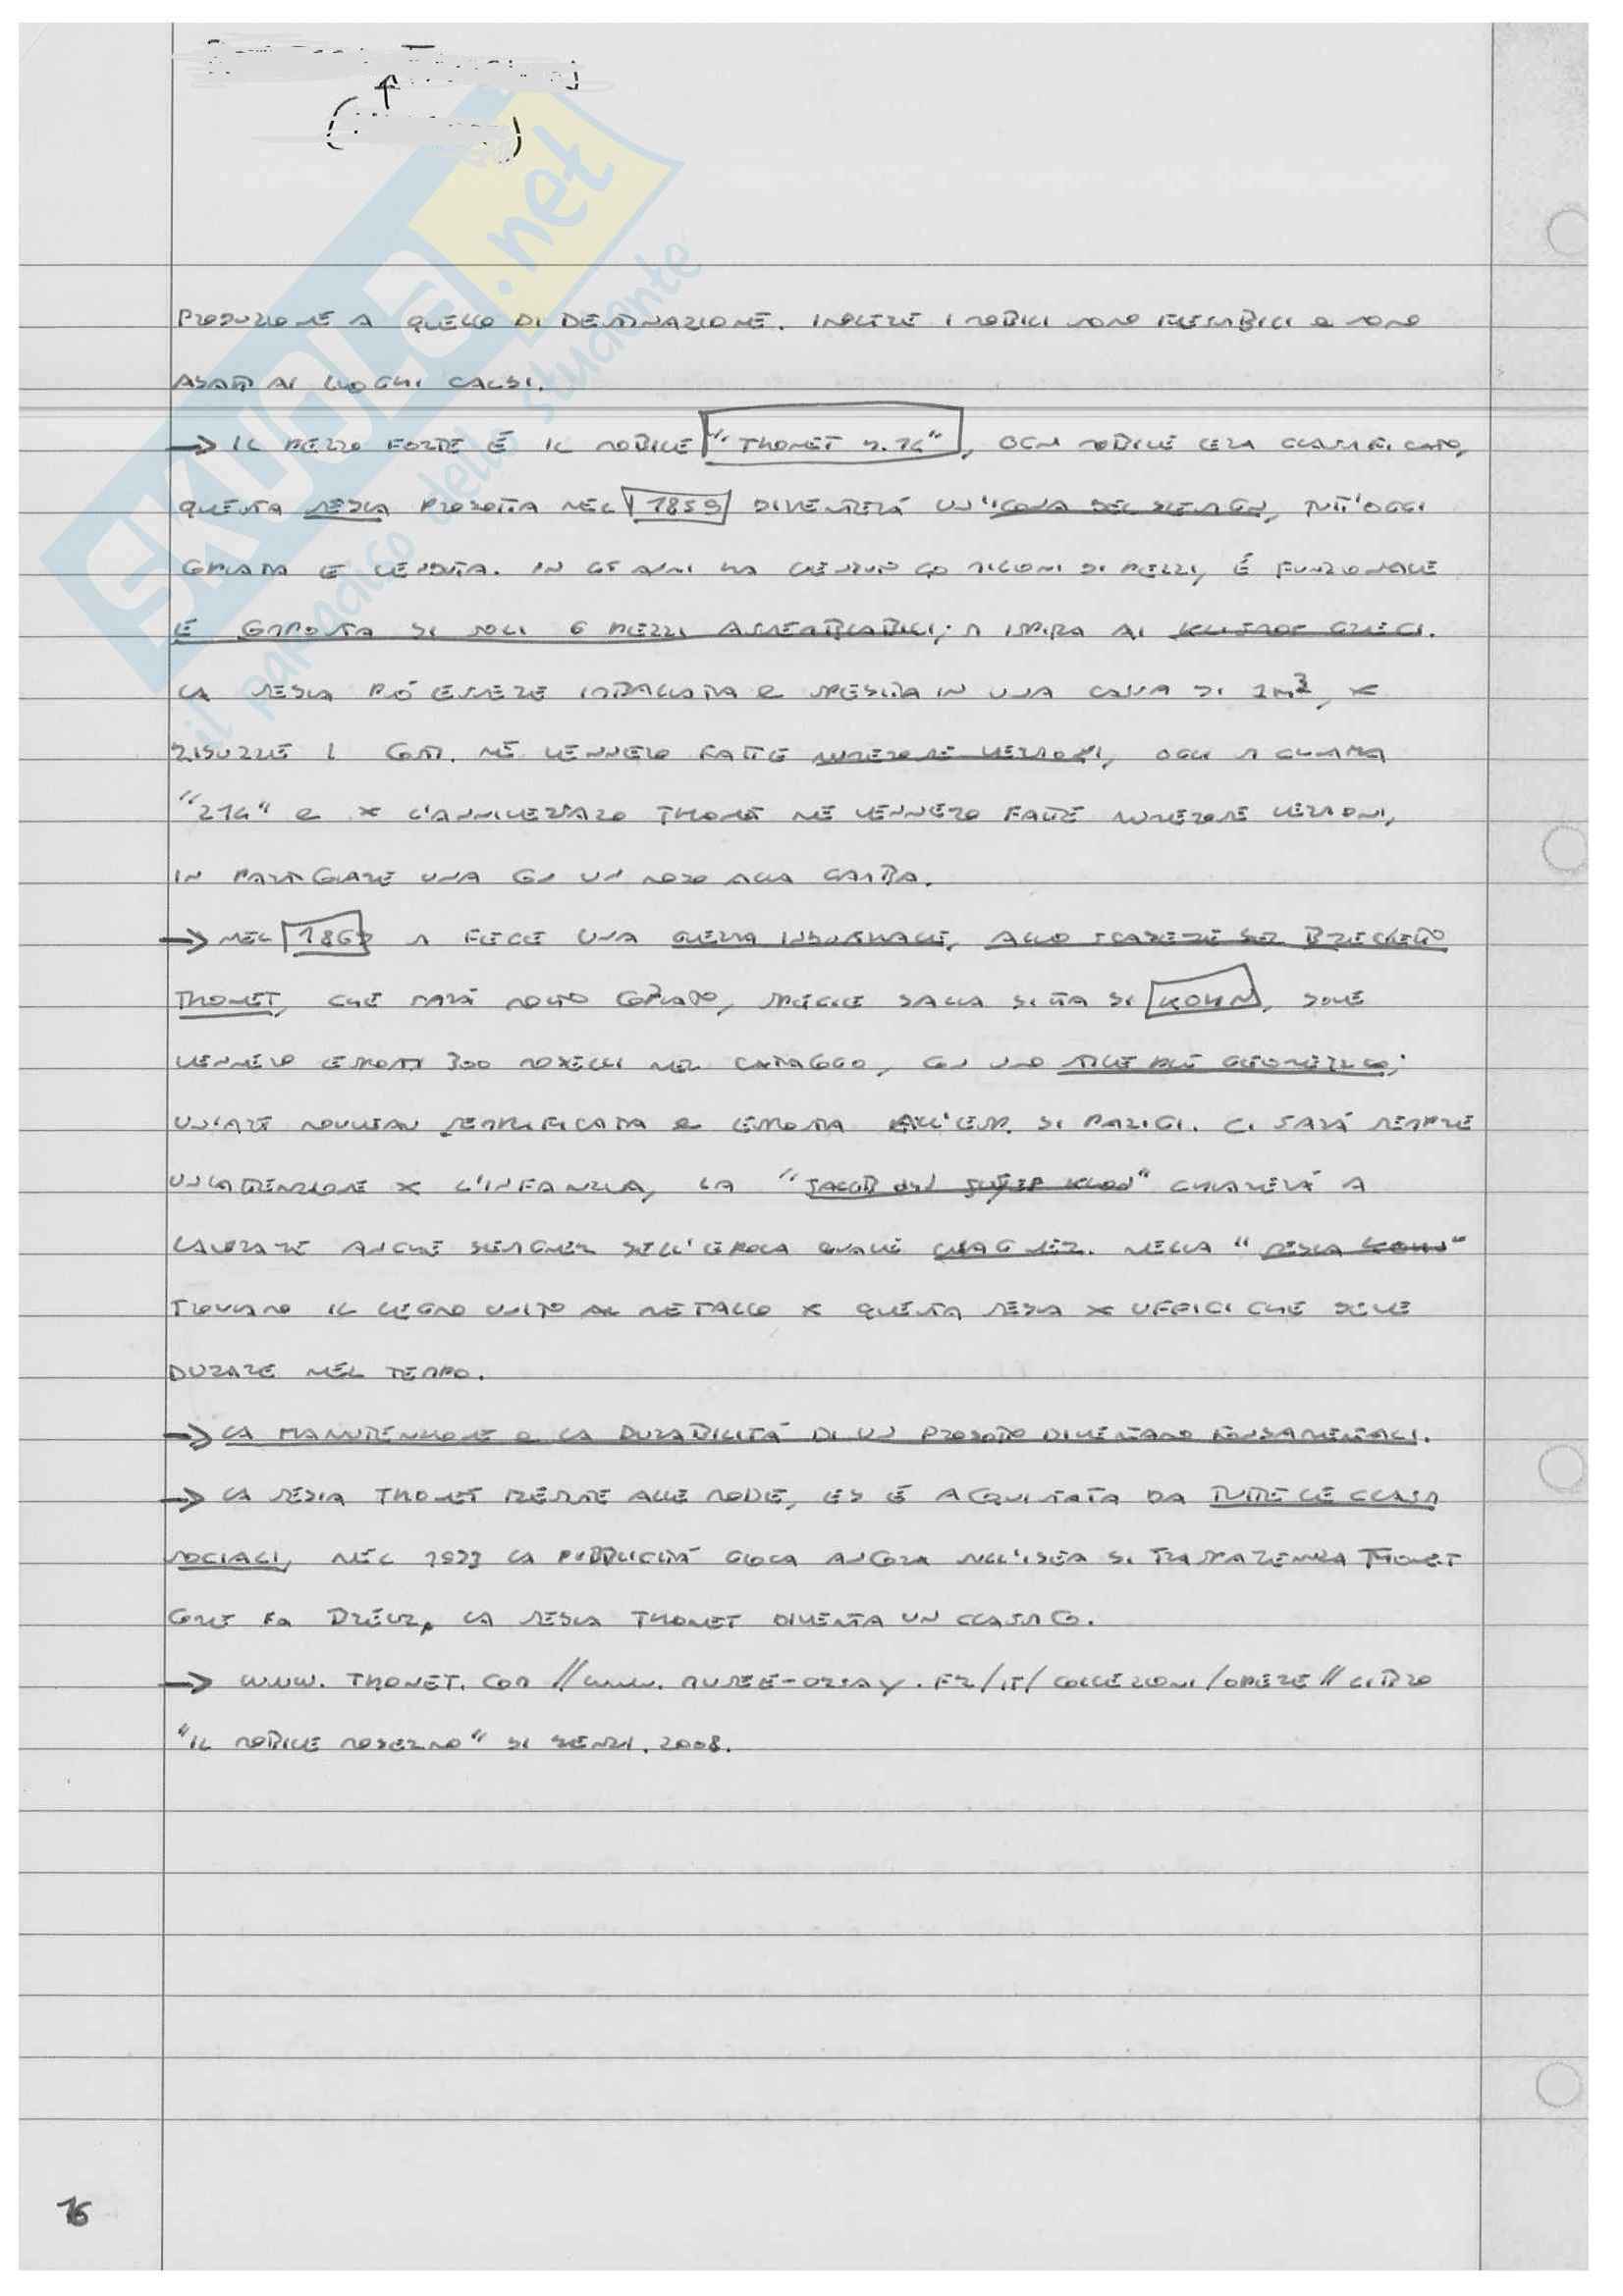 PRODUZIONE A QUELLO DI DESTINAZIONE. INOLTRE I MOBILI SONO FLESSIBILI E SONO
ADATTI AI LUOGHI CALDI.
→ IL PEZZO FORTE É IL MOBILE "THONET N.14", OGNI MOBILE ERA CLASSIFICATO,
QUESTA SEDIA PRODOTTA NEL 1859 DIVENTERÁ UN'ICONA DEL DESIGN, TUTT'OGGI
COPIATA E VENDUTA. IN 65 ANNI HA VENDUTO 50 MILIONI DI PEZZI, É FUNZIONALE
E COMPOSTA DI SOLI 6 PEZZI ASSEMBLABILI; SI ISPIRA AI KLISMOS GRECI.
LA SEDIA PUÓ ESSERE IMBALLATA E SPEDITA IN UNA CASSA DI 1M³, X
RIDURRE I COSTI. NE VENNERO FATTE NUMEROSE VERSIONI, OGGI SI CHIAMA
"214" E X L'ANNIVERSARIO THONET NE VENNERO FATTE NUMEROSE VERSIONI,
IN PARTICOLARE UNA CON UN NODO ALLA GAMBA.
→ NEL 1869 SI FECE UNA GUERRA INDUSTRIALE, ALLO SCADERE DEL BREVETTO
THONET, CHE SARÁ MOLTO COPIATO, SPECIE DALLA DITTA DI KOHN, DOVE
VENNERO ESPOSTI 300 MODELLI NEL CATALOGO, CON UNO STILE PIÚ GEOMETRICO;
UN'ART NOUVEAU SEMPLIFICATA E ESPOSTA ALL'ESP. DI PARIGI. CI SARÁ SEMPRE
UN'ATTENZIONE X L'INFANZIA, LA "JACOB AND JOSEF KOHN" CHIAMERÁ A
LAVORARE ANCHE DESIGNER DELL'EPOCA QUALE WAGNER. NELLA "SEDIA KOHN"
TROVIAMO IL LEGNO UNITO AL METALLO X QUESTA SEDIA X UFFICI CHE DEVE
DURARE NEL TEMPO.
→ LA MANUTENZIONE E LA DURABILITÁ DI UN PRODOTTO DIVENTANO FONDAMENTALI.
→ LA SEDIA THONET RESISTE ALLE MODE, ED É ACQUISTATA DA TUTTE LE CLASSI
SOCIALI, NEL 1973 LA PUBBLICITÁ GIOCA ANCORA SULL'IDEA DI TRASPARENZA THONET
COME FA BREUER, LA SEDIA THONET DIVENTA UN CLASSICO.
→ WWW.THONET.COM // WWW.MUSEE-ORSAY.FR/IT/COLLEZIONI/OPERE // LIBRO
"IL MOBILE MODERNO" DI DENZI. 2008.
16
SKUOLA.net
il paradiso dello studente